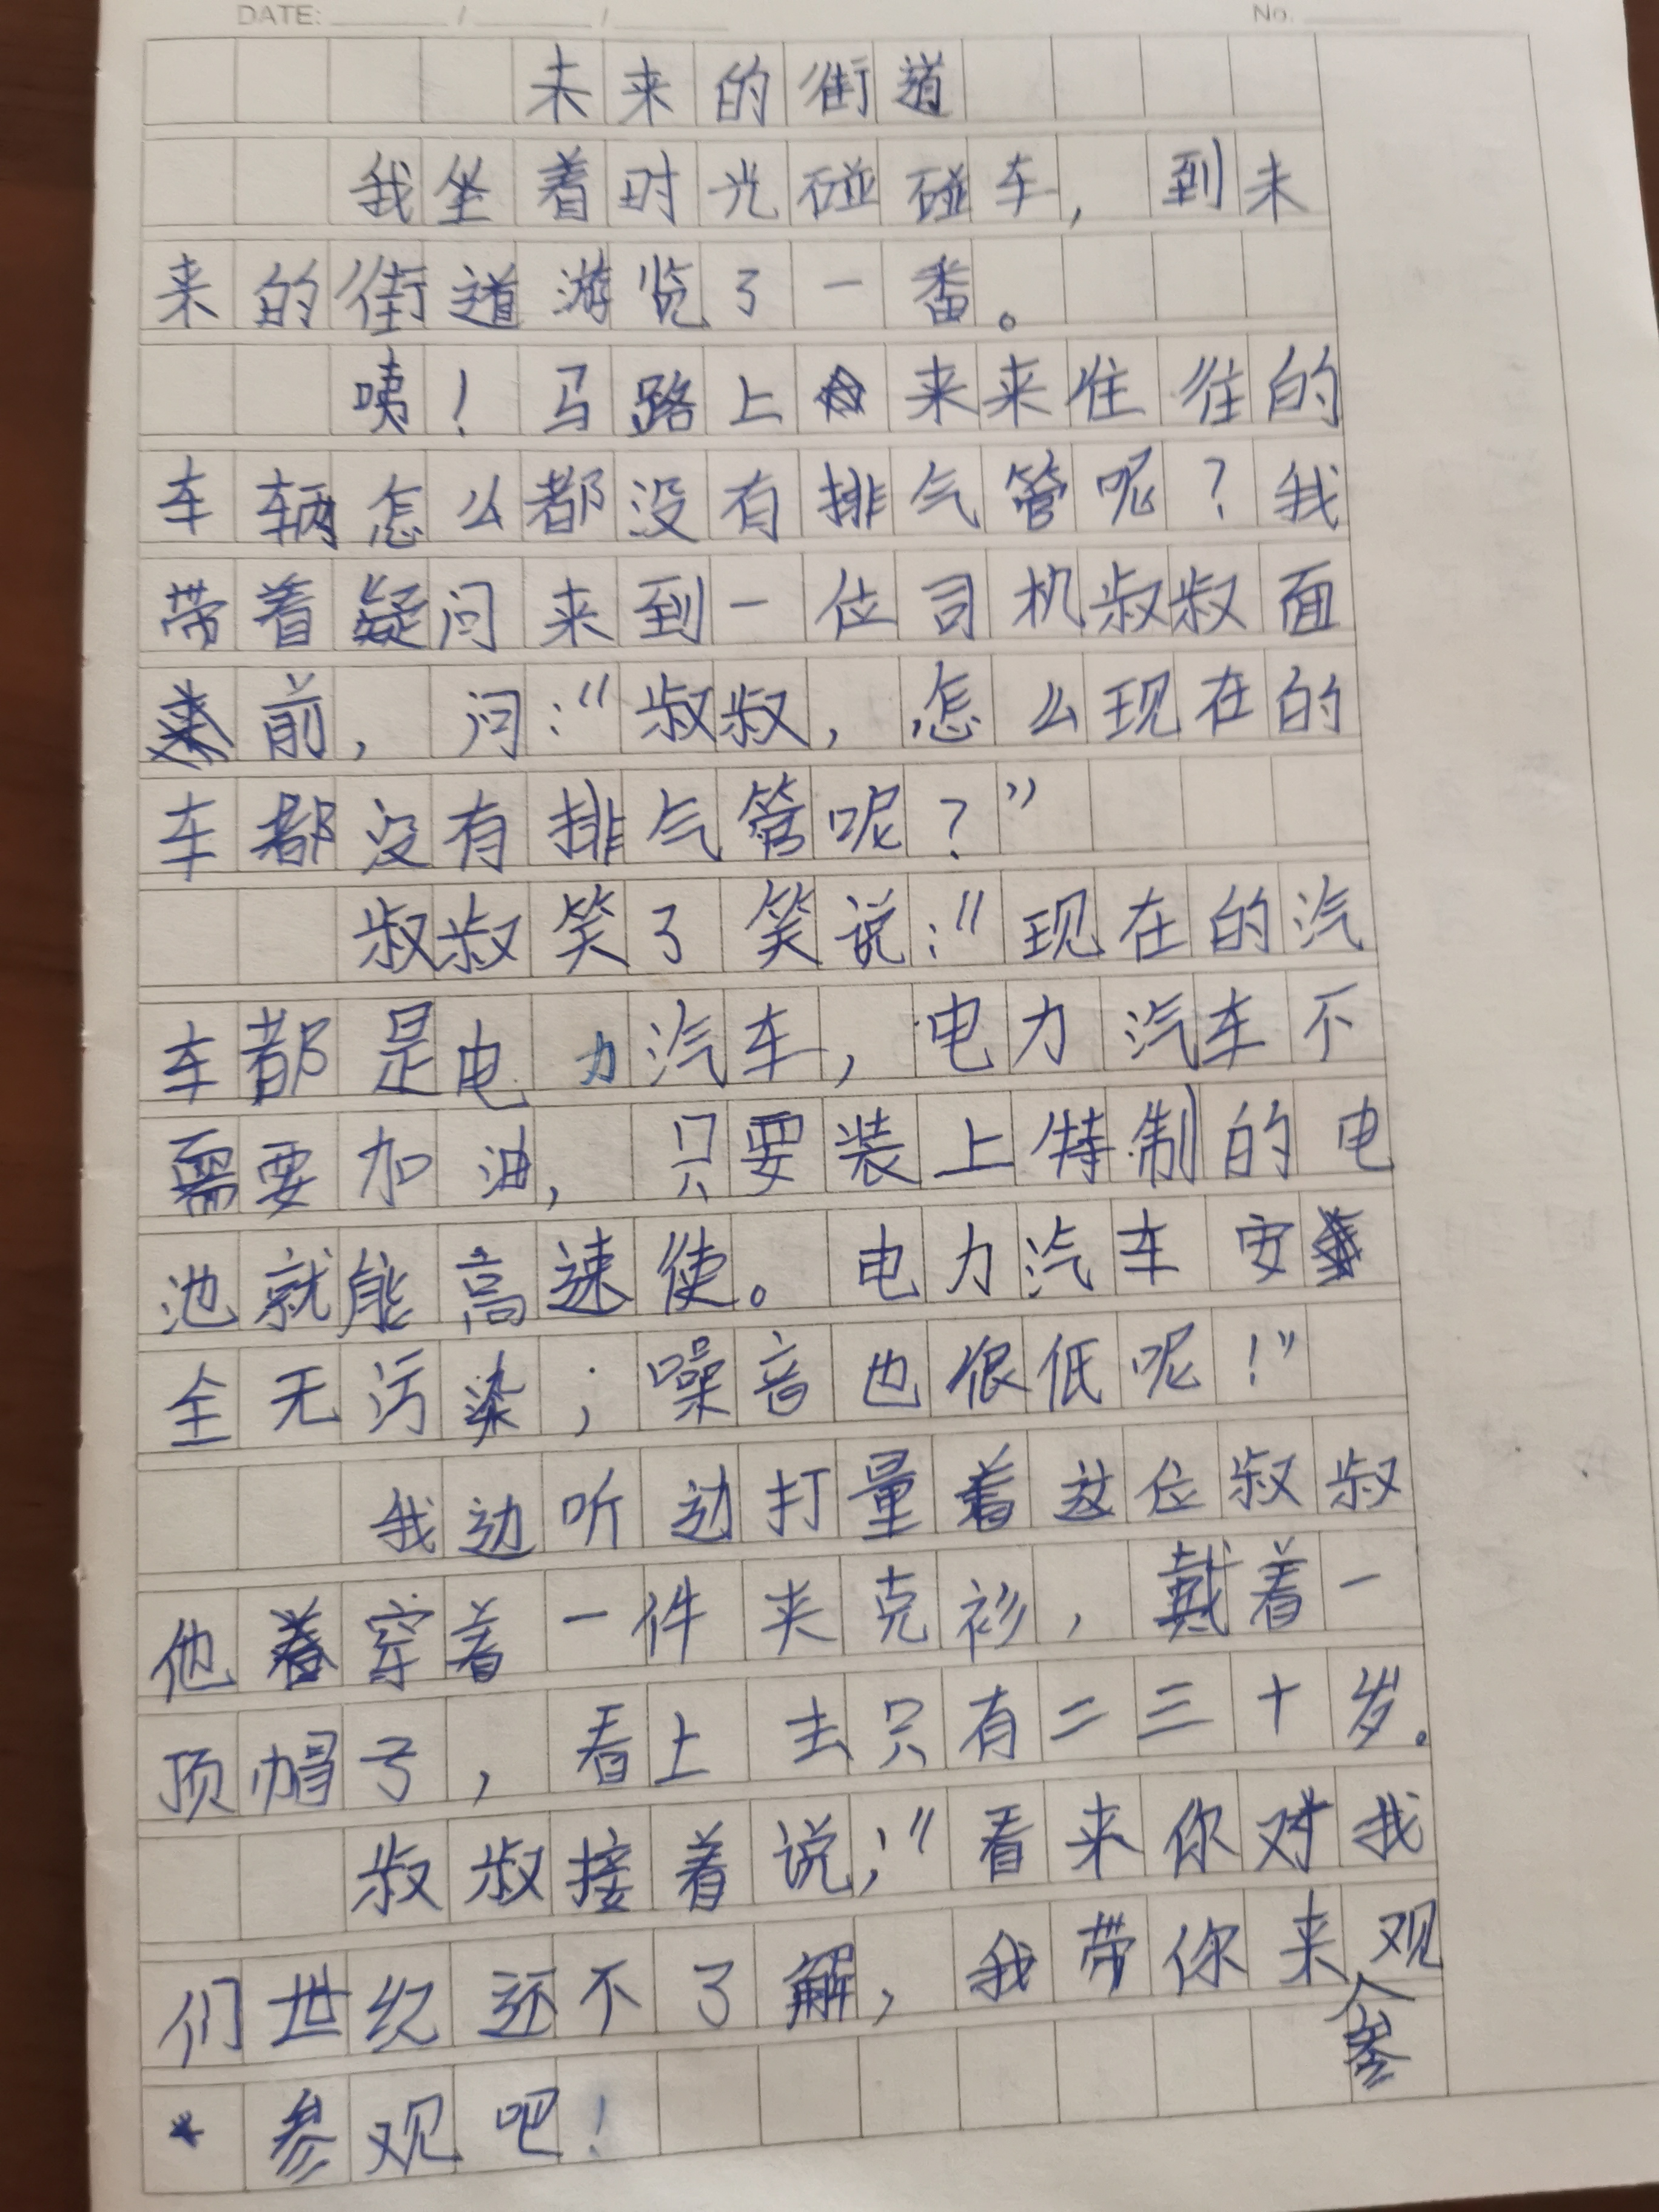 DATE: / /
No.
未来的街道
我坐着时光碰碰车，到未
来的街道游览了一番。
咦！马路上来来住往的
车辆怎么都没有排气管呢？我
带着疑问来到一位司机叔叔面
前，问：“叔叔，怎么现在的
车都没有排气管呢？”
叔叔笑了笑说：“现在的汽
车都是电力汽车，电力汽车不
需要加油，只要装上特制的电
池就能高速使。电力汽车安
全无污染；噪音也很低呢！”
我边听边打量着这位叔叔
他穿着一件夹克衫，戴着一
顶帽子，看上去只有二三十岁。
叔叔接着说；“看来你对我
们世纪还不了解，我带你来参观
参观吧！